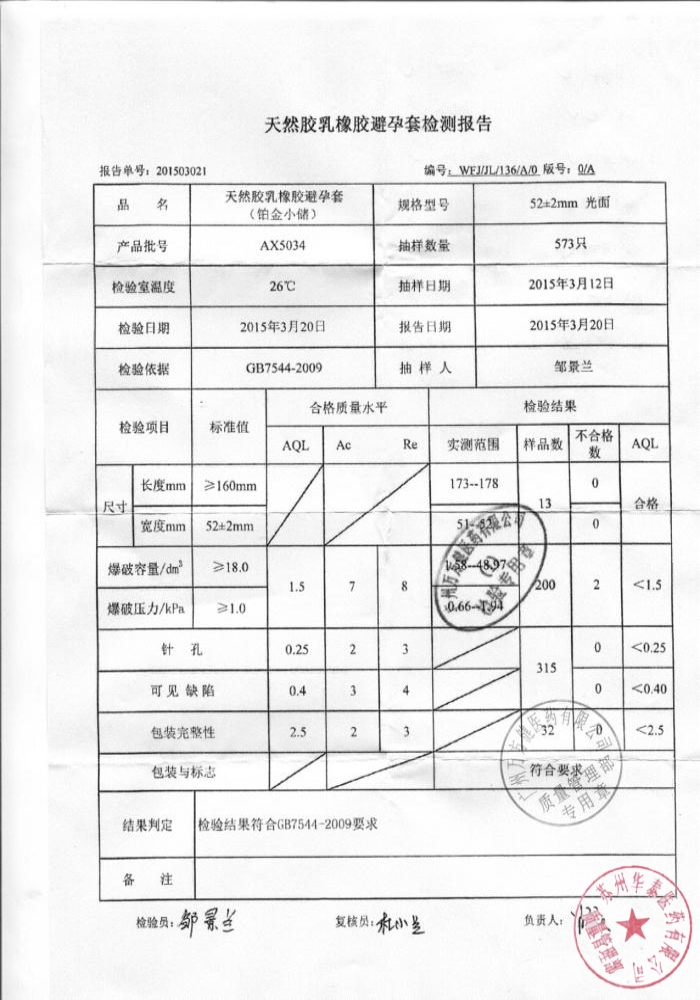 天然胶乳橡胶避孕套检测报告
报告单号：201503021 编号：WFJ/JL/136/A/0 版号：0/A
品 名 天然胶乳橡胶避孕套 规格型号 52±2mm 光面
（铂金小储）
产品批号 AX5034 抽样数量 573只
检验室温度 26℃ 抽样日期 2015年3月12日
检验日期 2015年3月20日 报告日期 2015年3月20日
检验依据 GB7544-2009 抽 样 人 邹景兰
检验项目 标准值 合格质量水平 检验结果
AQL Ac Re 实测范围 样品数 不合格数 AQL
尺寸 长度mm ≥160mm 173--178 13 0 合格
宽度mm 52±2mm 51--52 0
爆破容量/dm³ ≥18.0 1.5 7 8 1.58--48.97 200 2 <1.5
爆破压力/kPa ≥1.0 0.66--1.94
针 孔 0.25 2 3 315 0 <0.25
可见 缺陷 0.4 3 4 0 <0.40
包装完整性 2.5 2 3 32 0 <2.5
包装与标志 符合要求
结果判定 检验结果符合GB7544-2009要求
备 注
检验员：邹景兰 复核员：杜小兰 负责人：
广州万方健医药有限公司
(1)
检验专用章
广州万方健医药有限公司
质量管理部
专用章
苏州华泰医药有限公司
质量管理部